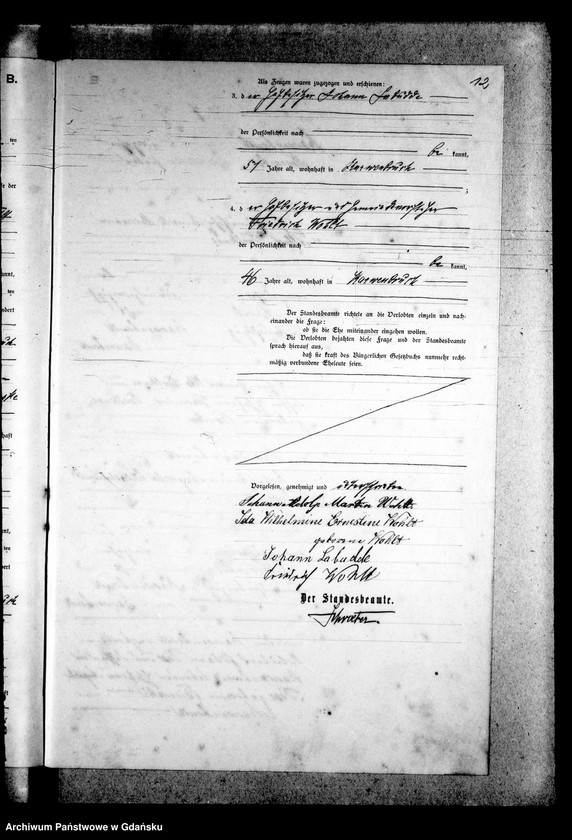 B.
12
Als Zeugen waren zugezogen und erschienen:
3. der Hofbesitzer Johann Labudde
der Persönlichkeit nach
be kannt,
51 Jahre alt, wohnhaft in Karwenbruch
;
4. der Hofbesitzer und Gemeindevorsteher
Friedrich Wohlt
der Persönlichkeit nach
be kannt,
46 Jahre alt, wohnhaft in Karwenbruch
Der Standesbeamte richtete an die Verlobten einzeln und nach-
einander die Frage:
ob sie die Ehe miteinander eingehen wollen.
Die Verlobten bejahten diese Frage und der Standesbeamte
sprach hierauf aus,
daß sie kraft des Bürgerlichen Gesetzbuchs nunmehr recht-
mäßig verbundene Eheleute seien.
Vorgelesen, genehmigt und unterschrieben
Johann Adolf Martin Wohlt.
Ida Wilhelmine Ernestine Wohlt
geborene Wohlt
Johann Labudde
Friedrich Wohlt
Der Standesbeamte.
Schroeter.
Archiwum Państwowe w Gdańsku